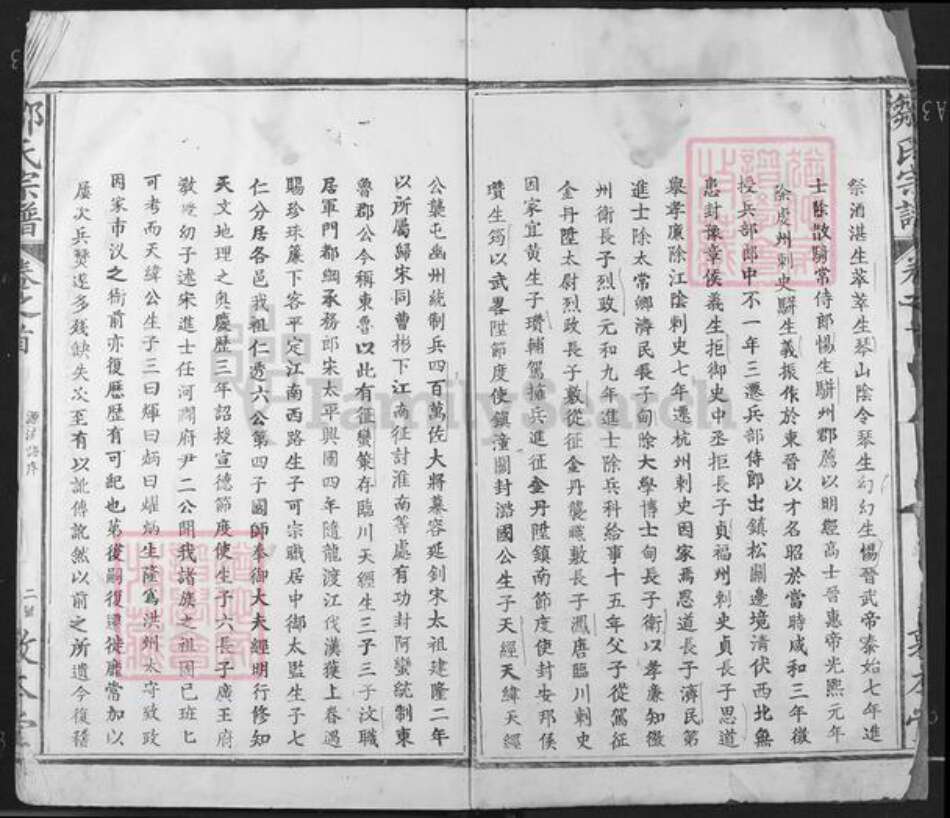 祭酒湛生萃萃生琴山陰令琴生幻幻生惕晉武帝泰始七年進
士除散騎常侍郎惕生駢州郡薦以明經高士晉惠帝光熙元年
除虔州刺史駢生義振作於東晉以才名昭於當時咸和三年徵
授兵部郎中不一年三遷兵部侍郎出鎮松關邊境清伏西北無
患封豫章侯義生拒御史中丞拒長子貞福州刺史貞長子思道
舉孝廉除江陰刺史七年遷杭州刺史因家焉思道長子濟民第
進士除太常卿濟民長子甸除大學博士甸長子衛以孝廉知徵
州衛長子烈政元和九年進士除兵科給事十五年父子從駕征
金丹陞太尉烈政長子敷從征金丹襲職敷長子鳳唐臨川刺史
因家宜黃生子瓚輔駕擁兵進征金丹陞鎮南節度使封安邦侯
瓚生筠以武畧陞節度使鎮潼關封潞國公生子天經天緯天經
公襲屯幽州統制兵四百萬佐大將慕容延釗宋太祖建隆二年
以所屬歸宋同曹彬下江南征討淮南等處有功封阿蠻統制東
魯郡公今稱東魯以此有征蠻策存臨川天經生三子三子汶職
居軍門都綱承務郎宋太平興國四年隨龍渡江伐漢獲上眷遇
賜珍珠簾下客平定江南西路生子可宗職居中御太監生子七
仁分居各邑我祖仁透六公第四子國師奉御大夫經明行修知
天文地理之奥慶歷三年詔授宣德節度使生子六長子廣王府
教授幼子述宋進士任河間府尹二公開我諸族之祖固已班匕
可考而天緯公生子三曰輝曰炳曰燿炳生隆爲洪州太守致政
因家市汊之衙前亦復歷歷有可紀也第後嗣復遷徙靡常加以
屢次兵燹遂多殘缺失次至有以訛傳訛然以前之所遺今復稽
鄒氏宗譜
卷之首
源流總序
二
敦本堂
鄒氏宗譜